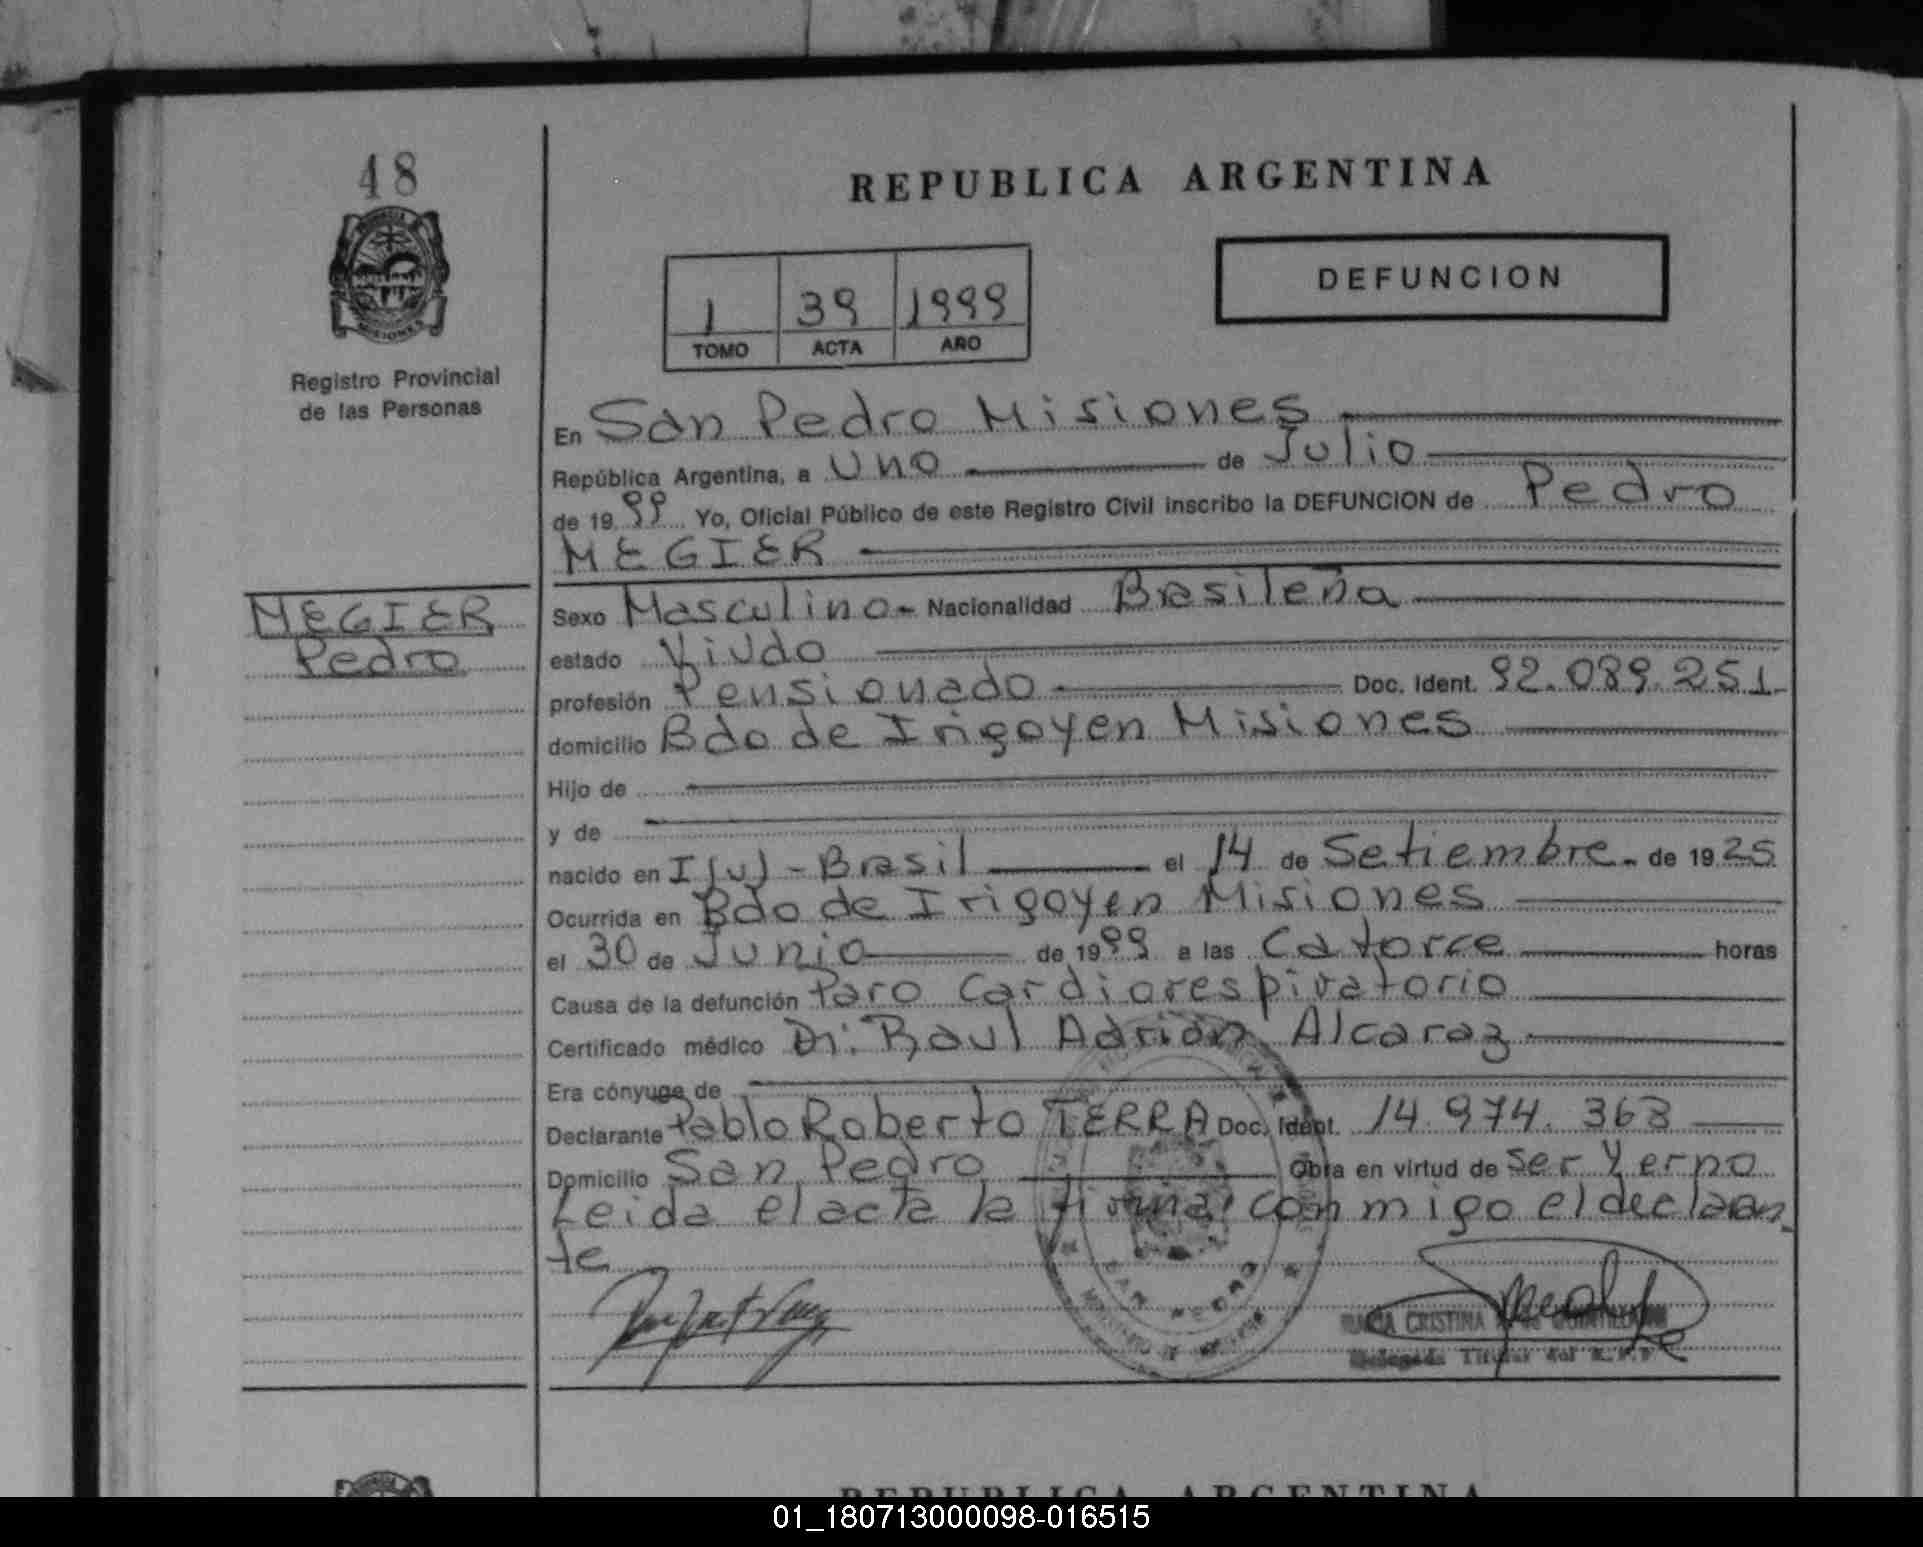 48
REPUBLICA ARGENTINA
DEFUNCION
1 39 1999
TOMO ACTA AÑO
MISIONES
Registro Provincial
de las Personas
En San Pedro Misiones
República Argentina, a Uno de Julio
de 1999 Yo, Oficial Público de este Registro Civil inscribo la DEFUNCION de Pedro
MEGIER
MEGIER
Pedro
Sexo Masculino - Nacionalidad Brasileña
estado Viudo
profesión Pensionado Doc. Ident. 92.089.251
domicilio Bdo de Irigoyen Misiones
Hijo de
y de
nacido en Ijuí - Brasil el 14 de Setiembre - de 1925
Ocurrida en Bdo de Irigoyen Misiones
el 30 de Junio de 1999 a las Catorce horas
Causa de la defunción Paro Cardiorespiratorio
Certificado médico Dr: Raul Adrian Alcaraz
Era cónyuge de
Declarante Pablo Roberto TERRA Doc. Ident. 14.974.363
Domicilio San Pedro Obra en virtud de ser Yerno
Leida el acta la firma conmigo el declaran
te
SAN PEDRO
CRISTINA
Delegada Titular del R.P.P
REPUBLICA ARGENTINA
01_180713000098-016515